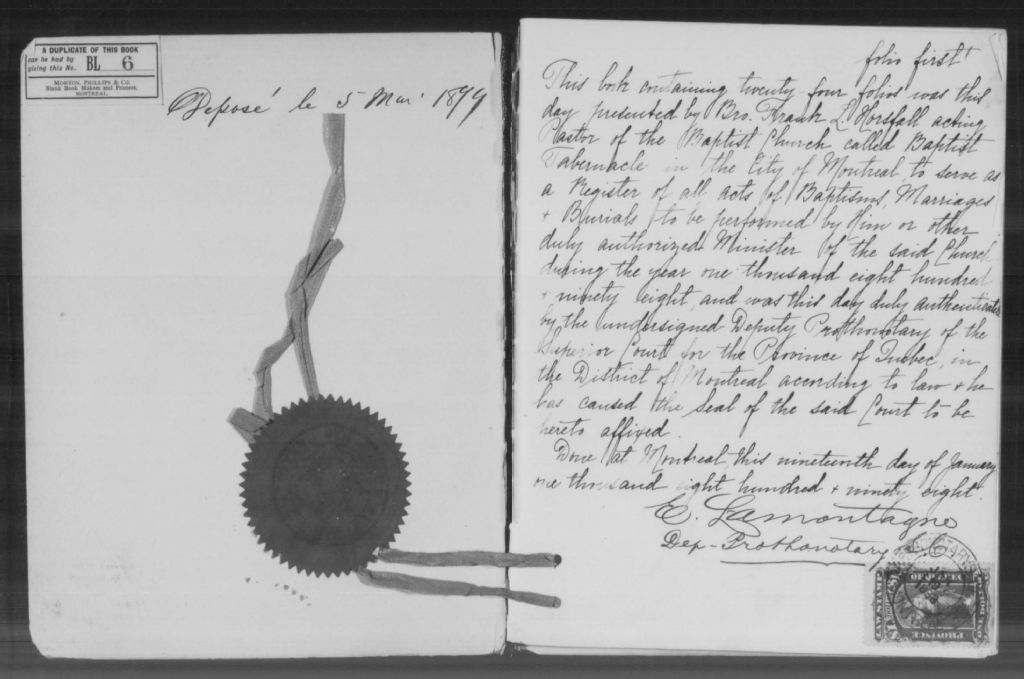 A DUPLICATE OF THIS BOOK
can be had by
giving this No. BL 6
MORTON, PHILLIPS & CO.
Blank Book Makers and Printers,
MONTREAL.
Déposé le 5 1899
folio first
This book containing twenty four folios was this
day presented by Bro. Frank L. Horsfall acting
Pastor of the Baptist Church called Baptist
Tabernacle in the City of Montreal, to serve as
a Register of all acts of Baptisms, Marriages
+ Burials to be performed by Him or other
duly authorized Minister of the said Church
during the year one thousand eight hundred
+ ninety eight, and was this day duly authenticated
by the undersigned Deputy Prothonotary of the
Superior Court for the Province of Quebec, in
the District of Montreal according to law + he
has caused the Seal of the said Court to be
hereto affixed.
Done at Montreal, this nineteenth day of January
one thousand eight hundred + ninety eight.
E. Lamontagne
Dep-Prothonotary
LAW STAMP
PROVINCE
OF QUEBEC
$1